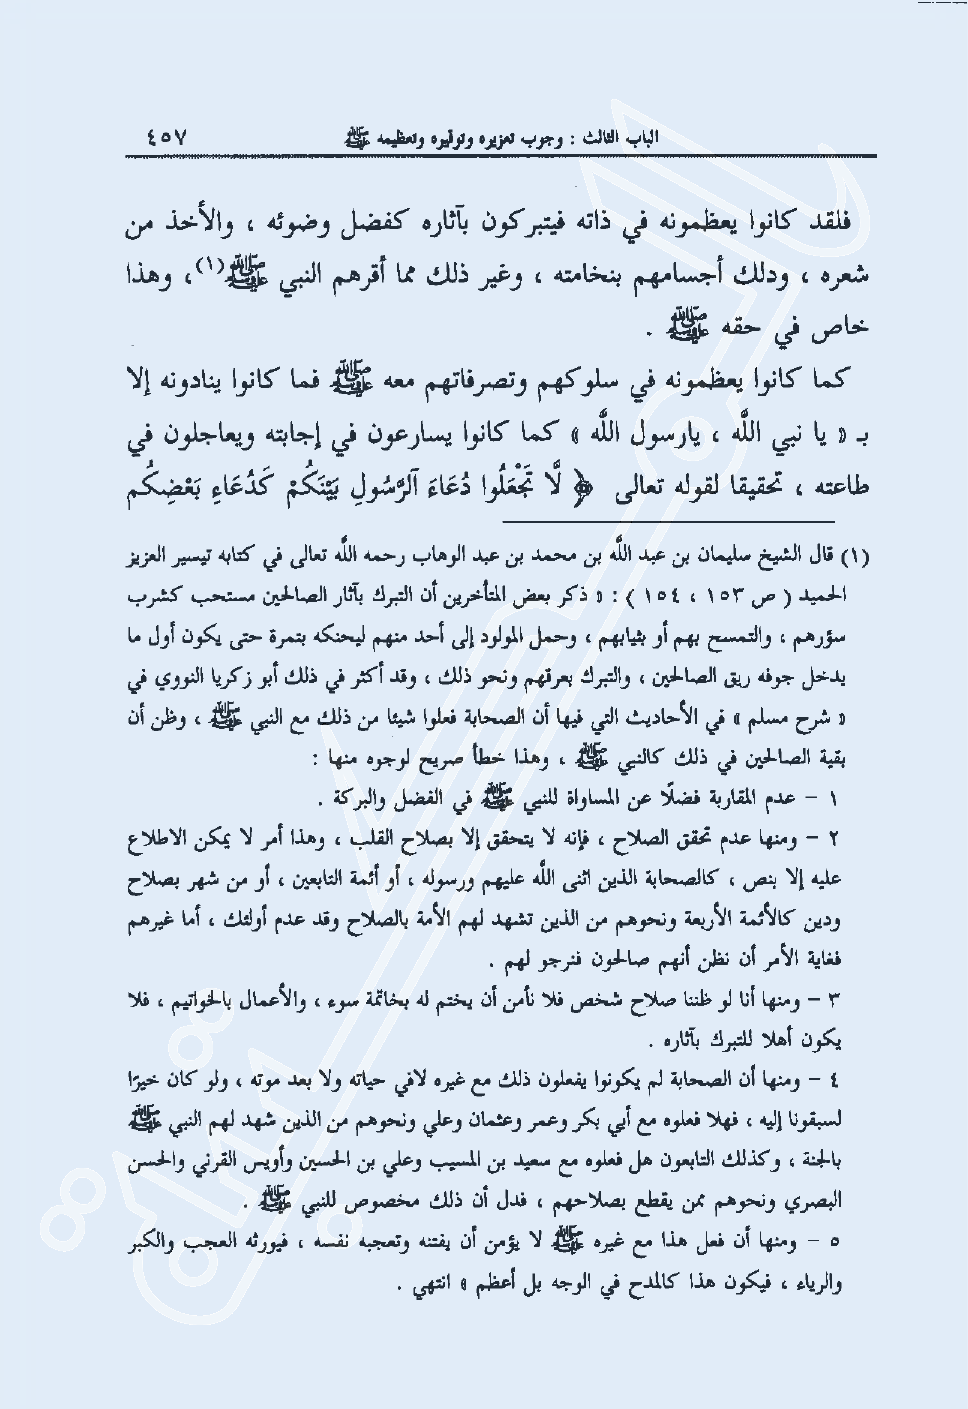 الباب الثالث : وجوب تعزيره وتوقيره وتعظيمه ﷺ ٤٥٧
فلقد كانوا يعظمونه في ذاته فيتبركون بآثاره كفضل وضوئه ، والأخذ من
شعره ، ودلك أجسامهم بنخامته ، وغير ذلك مما أقرهم النبي ﷺ(١)، وهذا
خاص في حقه ﷺ .
كما كانوا يعظمونه في سلوكهم وتصرفاتهم معه ﷺ فما كانوا ينادونه إلا
بـ « يا نبي الله ، يارسول الله » كما كانوا يسارعون في إجابته ويعاجلون في
طاعته ، تحقيقا لقوله تعالى ﴿ لَّا تَجْعَلُوا دُعَاءَ ٱلرَّسُولِ بَيْنَكُمْ كَدُعَاءِ بَعْضِكُم
(١) قال الشيخ سليمان بن عبد الله بن محمد بن عبد الوهاب رحمه الله تعالى في كتابه تيسير العزيز
الحميد ( ص ١٥٣ ، ١٥٤ ) : « ذكر بعض المتأخرين أن التبرك بآثار الصالحين مستحب كشرب
سؤرهم ، والتمسح بهم أو بثيابهم ، وحمل المولود إلى أحد منهم ليحنكه بتمرة حتى يكون أول ما
يدخل جوفه ريق الصالحين ، والتبرك بعرقهم ونحو ذلك ، وقد أكثر في ذلك أبو زكريا النووي في
« شرح مسلم » في الأحاديث التي فيها أن الصحابة فعلوا شيئا من ذلك مع النبي ﷺ ، وظن أن
بقية الصالحين في ذلك كالنبي ﷺ ، وهذا خطأ صريح لوجوه منها :
١ - عدم المقاربة فضلًا عن المساواة للنبي ﷺ في الفضل والبركة .
٢ - ومنها عدم تحقق الصلاح ، فإنه لا يتحقق إلا بصلاح القلب ، وهذا أمر لا يمكن الاطلاع
عليه إلا بنص ، كالصحابة الذين اثنى الله عليهم ورسوله ، أو أئمة التابعين ، أو من شهر بصلاح
ودين كالأئمة الأربعة ونحوهم من الذين تشهد لهم الأمة بالصلاح وقد عدم أولئك ، أما غيرهم
فغاية الأمر أن نظن أنهم صالحون فنرجو لهم .
٣ - ومنها أنا لو ظننا صلاح شخص فلا نأمن أن يختم له بخاتمة سوء ، والأعمال بالخواتيم ، فلا
يكون أهلا للتبرك بآثاره .
٤ - ومنها أن الصحابة لم يكونوا يفعلون ذلك مع غيره لافي حياته ولا بعد موته ، ولو كان خيرًا
لسبقونا إليه ، فهلا فعلوه مع أبي بكر وعمر وعثمان وعلي ونحوهم من الذين شهد لهم النبي ﷺ
بالجنة ، وكذلك التابعون هل فعلوه مع سعيد بن المسيب وعلي بن الحسين وأويس القرني والحسن
البصري ونحوهم ممن يقطع بصلاحهم ، فدل أن ذلك مخصوص للنبي ﷺ .
٥ - ومنها أن فعل هذا مع غيره ﷺ لا يؤمن أن يفتنه وتعجبه نفسه ، فيورثه العجب والكبر
والرياء ، فيكون هذا كالمدح في الوجه بل أعظم » انتهي .